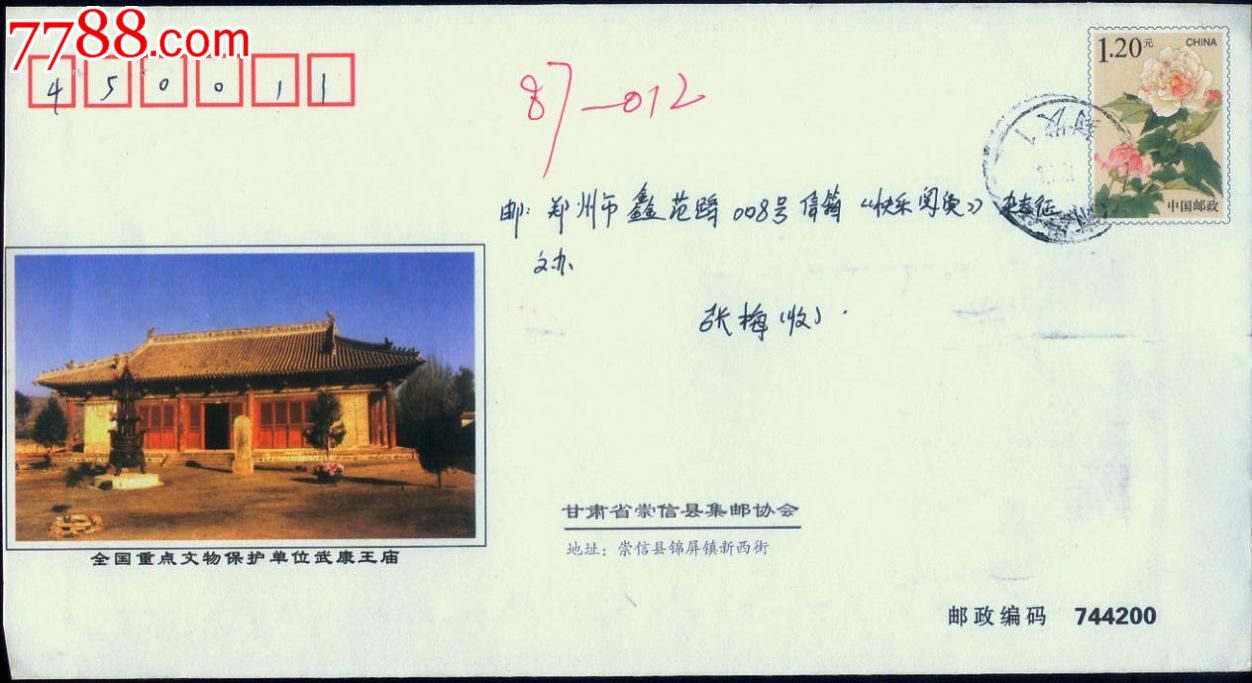 7788.com
450011
87-012
1.20元 CHINA
中国邮政
邮:郑州市鑫苑路008号信箱《快乐阅读》杂志征
文办
张梅(收).
甘肃省崇信县集邮协会
地址：崇信县锦屏镇新西街
全国重点文物保护单位武康王庙
邮政编码 744200